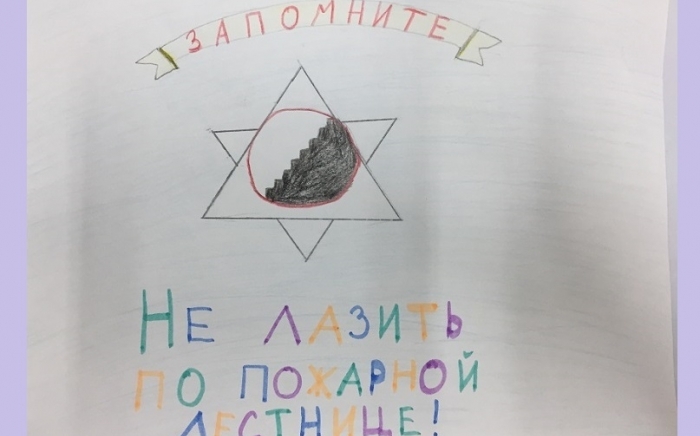 ЗАПОМНИТЕ
НЕ ЛАЗИТЬ
ПО ПОЖАРНОЙ
ЛЕСТНИЦЕ!